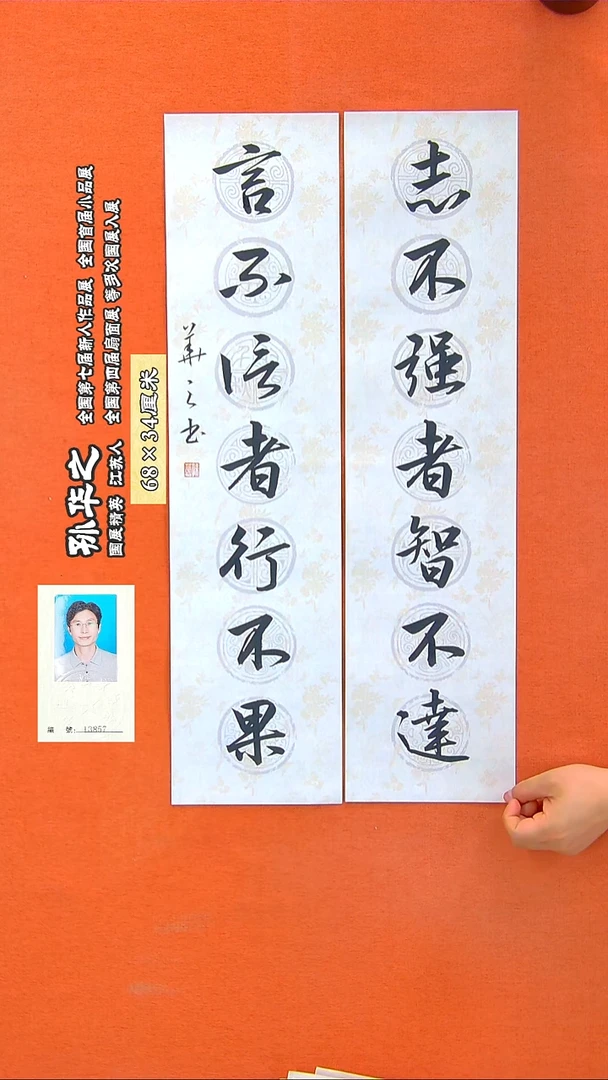 志不强者智不達
言不信者行不果
華之书
68×34厘米
孙华之
全国第七届新人作品展 全国首届小品展
国展精英 江苏人 全国第四届扇面展 等多次国展入展
編 號: 13857